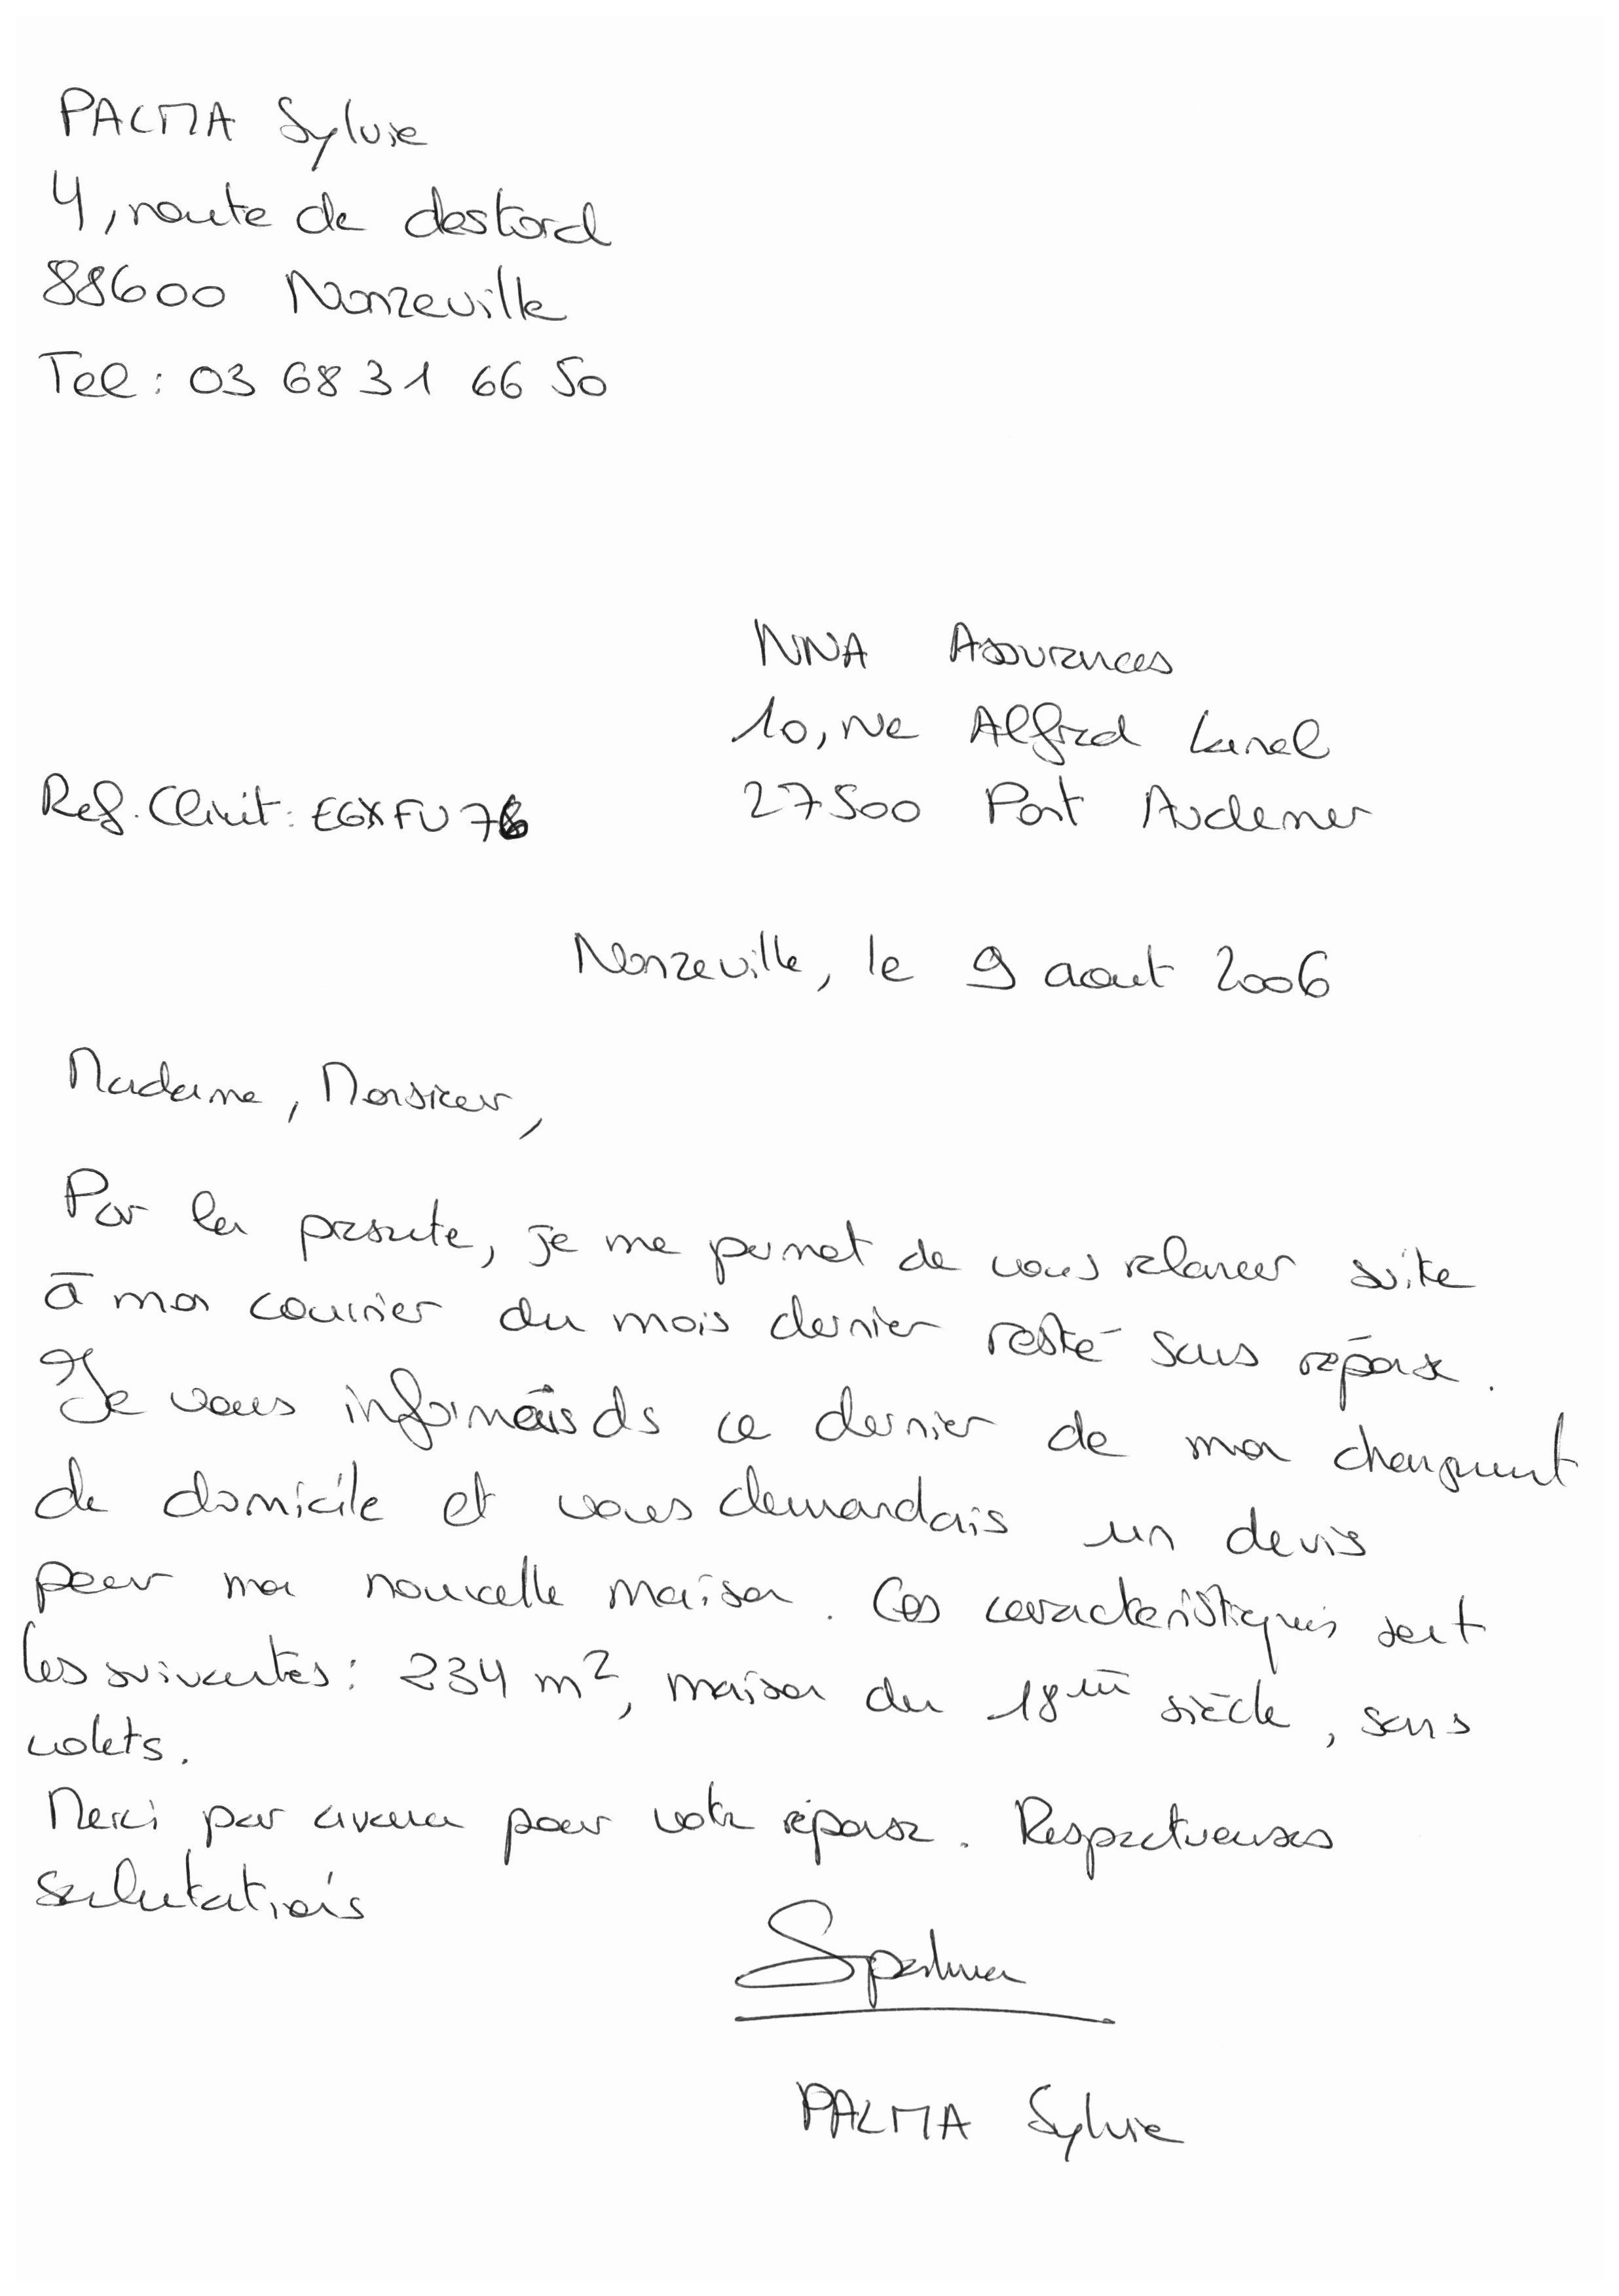 PALMA Sylvie
4, route de destord
88600 Nonzeville
Tel : 03 68 31 66 50
NNA Assurances
10, rue Alfred Lanel
Ref. Client : EGXFU76
27500 Pont Audemer
Nonzeville, le 9 aout 2006
Madame, Monsieur,
Par la présente, je me permet de vous relancer suite
à mon courrier du mois dernier resté sans réponse.
Je vous informais ds ce dernier de mon changement
de domicile et vous demandais un devis
pour ma nouvelle maison. Ces caractéristiques sont
les suivantes : 234 m², maison du 18ème siècle, sans
volets.
Merci par avance pour votre réponse. Respectueuses
salutations
SPalma
PALMA Sylvie